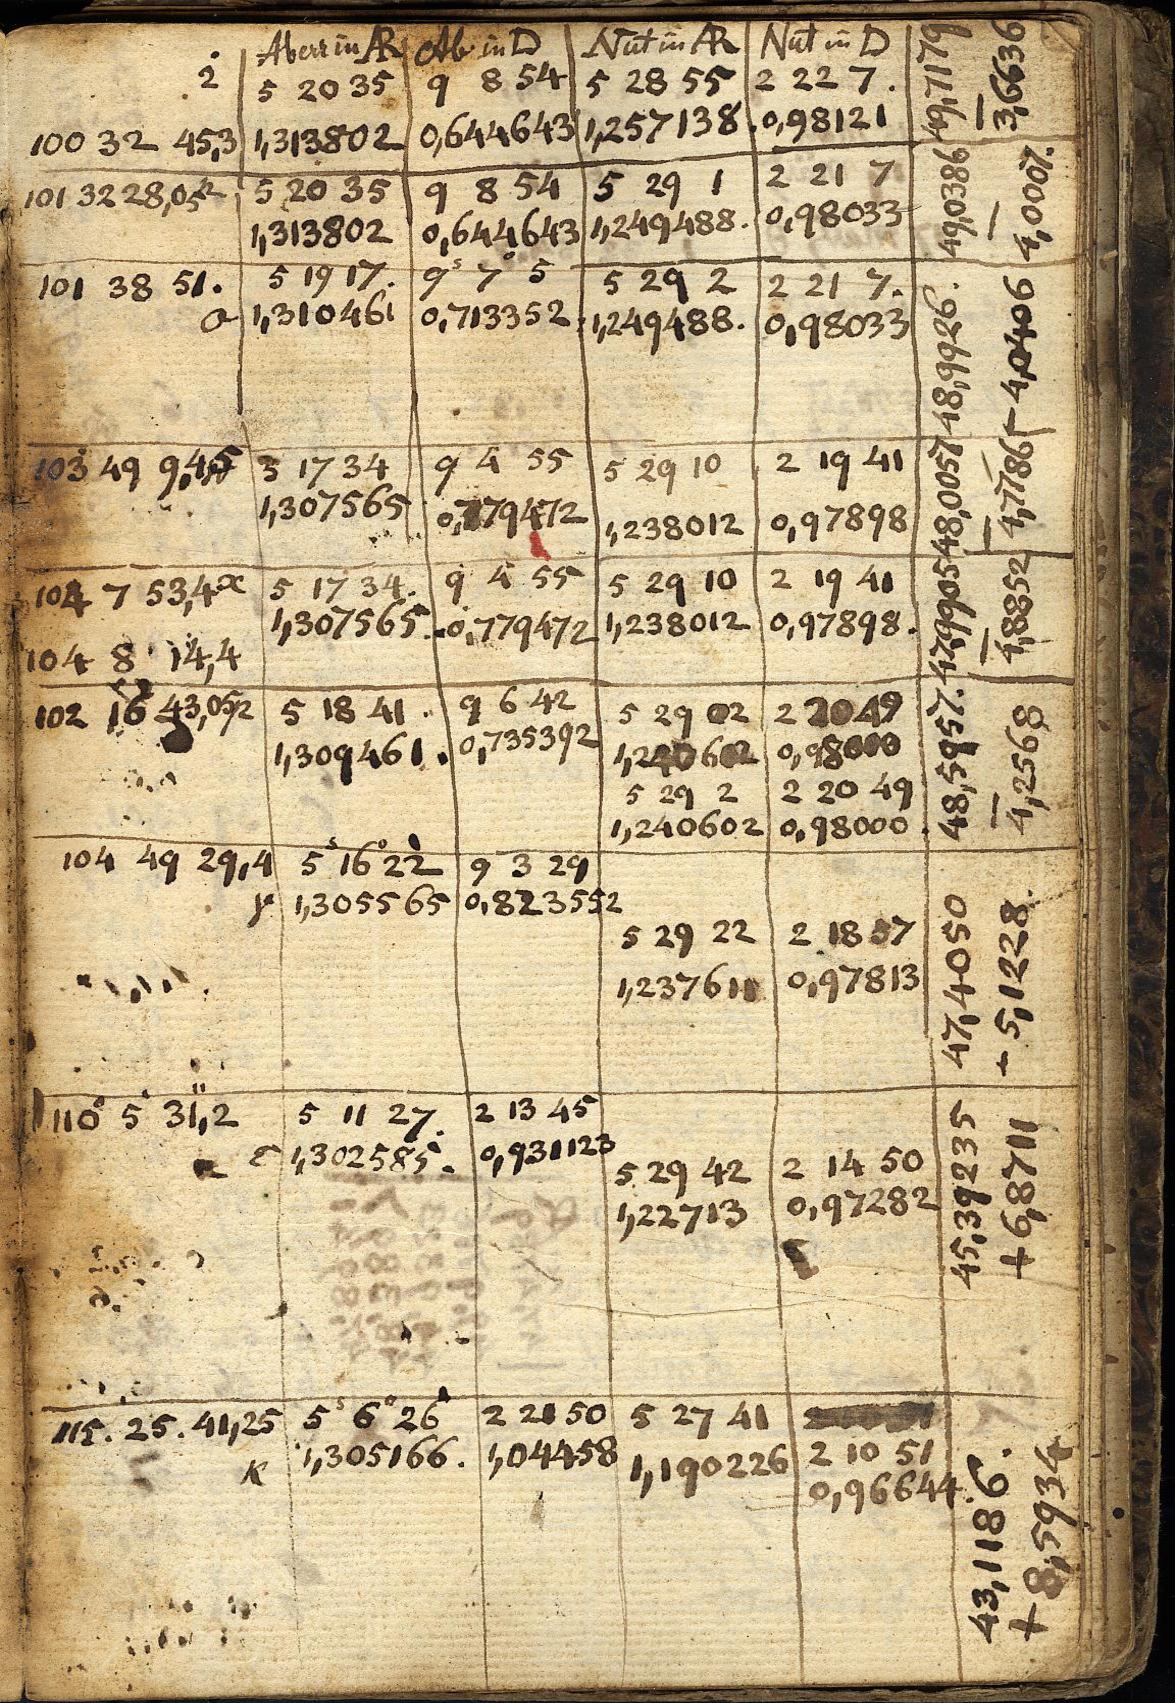 Aberr in AR Ab in D Nut in AR Nut in D
2 5 20 35 9 8 54 5 28 55 2 22 7.
100 32 45,3 1,313802 0,644643 1,257138. 0,98121
49,7179
3,6636
101 32 28,05 5 20 35 9 8 54 5 29 1 2 21 7
1,313802 0,644643 1,249488. 0,98033
49,0386
4,0007.
101 38 51. 5 19 17. 9ˢ 7° 5 5 29 2 2 21 7.
σ 1,310461 0,713352. 1,249488. 0,98033
48,9926.
4,0406
103 49 9,45 5 17 34 9 4 55 5 29 10 2 19 41
1,307565 0,779472 1,238012 0,97898
48,0057
4,7786
104 7 53,4 5 17 34. 9 4 55 5 29 10 2 19 41
1,307565. 0,779472 1,238012 0,97898.
104 8 14,4
47,9905
4,8852
102 16 43,05 5 18 41. 9 6 42 5 29 02 2 20 49
1,309461. 0,735392 1,240602 0,98000
5 29 2 2 20 49
1,240602 0,98000.
48,5957.
4,2568
104 49 29,4 5ˢ 16° 22 9 3 29
γ 1,305565 0,823552
5 29 22 2 18 57
1,237611 0,97813
47,4050
+ 5,1228.
110° 5' 31",2 5 11 27. 2 13 45
ε 1,302585. 0,931123
5 29 42 2 14 50
1,22713 0,97282
45,39235
+ 6,8711
115. 25. 41,25 5ˢ 6° 26 2 21 50 5 27 41
κ 1,305166. 1,04458 1,190226 2 10 51
0,96644.
43,1186.
+ 8,5934